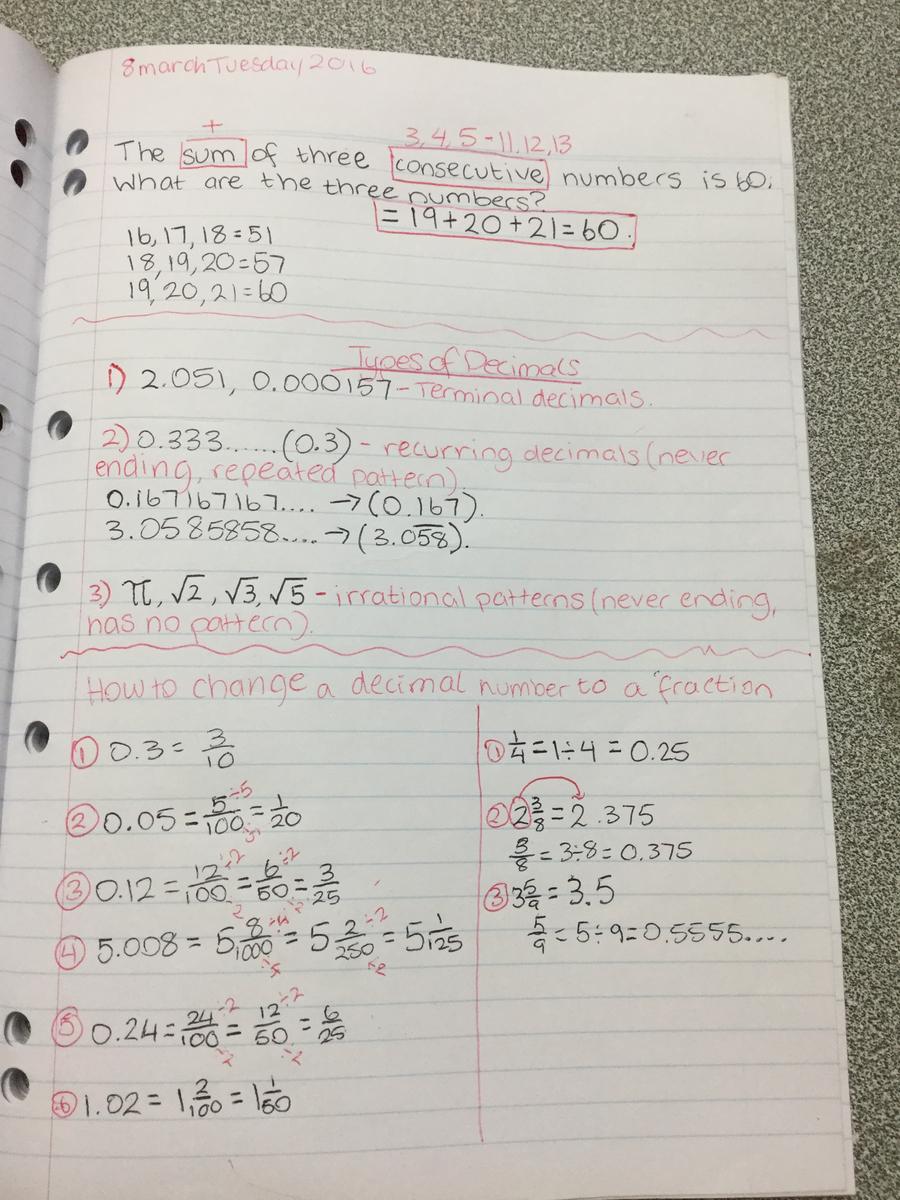 8 march Tuesday 2016
+
3, 4, 5 - 11, 12, 13
The sum of three consecutive numbers is 60.
What are the three numbers?
= 19 + 20 + 21 = 60.
16, 17, 18 = 51
18, 19, 20 = 57
19, 20, 21 = 60
Types of Decimals
1) 2.051, 0.000157 - Terminal decimals.
2) 0.333......(0.3) - recurring decimals (never
ending, repeated pattern).
0.167167167.... → (0.167).
3.0585858.... → (3.05̅8̅).
3) π, √2, √3, √5 - irrational patterns (never ending,
has no pattern).
How to change a decimal number to a fraction
① 0.3 = 3/10
② 0.05 = 5/100 ÷5 = 1/20
÷5
③ 0.12 = 12/100 ÷2 = 6/50 ÷2 = 3/25
÷2 ÷2
④ 5.008 = 5 8/1000 ÷4 = 5 2/250 ÷2 = 5 1/125
÷4 ÷2
⑤ 0.24 = 24/100 ÷2 = 12/50 ÷2 = 6/25
÷2 ÷2
⑥ 1.02 = 1 2/100 = 1 1/50
① 1/4 = 1 ÷ 4 = 0.25
② 2 3/8 = 2.375
3/8 = 3 ÷ 8 = 0.375
③ 3 5/9 = 3.5
5/9 = 5 ÷ 9 = 0.5555....